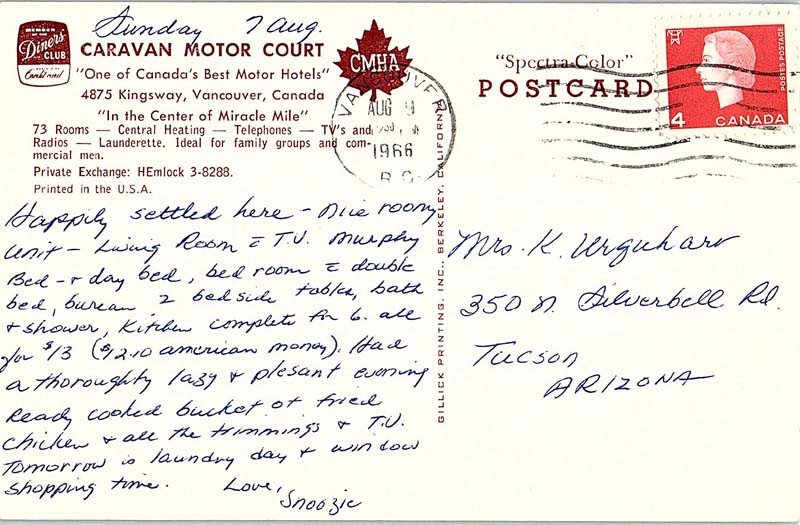 Sunday 7 Aug.
MEMBER OF THE
Diners'
CLUB
CARAVAN MOTOR COURT
"One of Canada's Best Motor Hotels"
4875 Kingsway, Vancouver, Canada
"In the Center of Miracle Mile"
73 Rooms — Central Heating — Telephones — TV's and
Radios — Launderette. Ideal for family groups and com-
mercial men.
Private Exchange: HEmlock 3-8288.
Printed in the U.S.A.
CMHA
VANCOUVER
AUG 9
1966
B.C.
"Spectra-Color"
POSTCARD
POSTES POSTAGE
4 CANADA
Happily settled here – nice roomy
unit – Living Room c̄ T.V. Murphy
Bed – + day bed, bed room c̄ double
bed, bureau 2 bedside tables, bath
+ shower, Kitchen complete for 6. all
for $13 ($12.10 american money). Had
a thoroughty lazy + plesant evening
Ready cooked bucket of fried
chicken + all the trimmings + T.V.
Tomorrow is laundry day + window
shopping time. Love,
Snoozie
GILLICK PRINTING, INC., BERKELEY, CALIFORNIA
Mrs. K. Urquhart
350 N. Silverbell Rd.
Tucson
ARIZONA